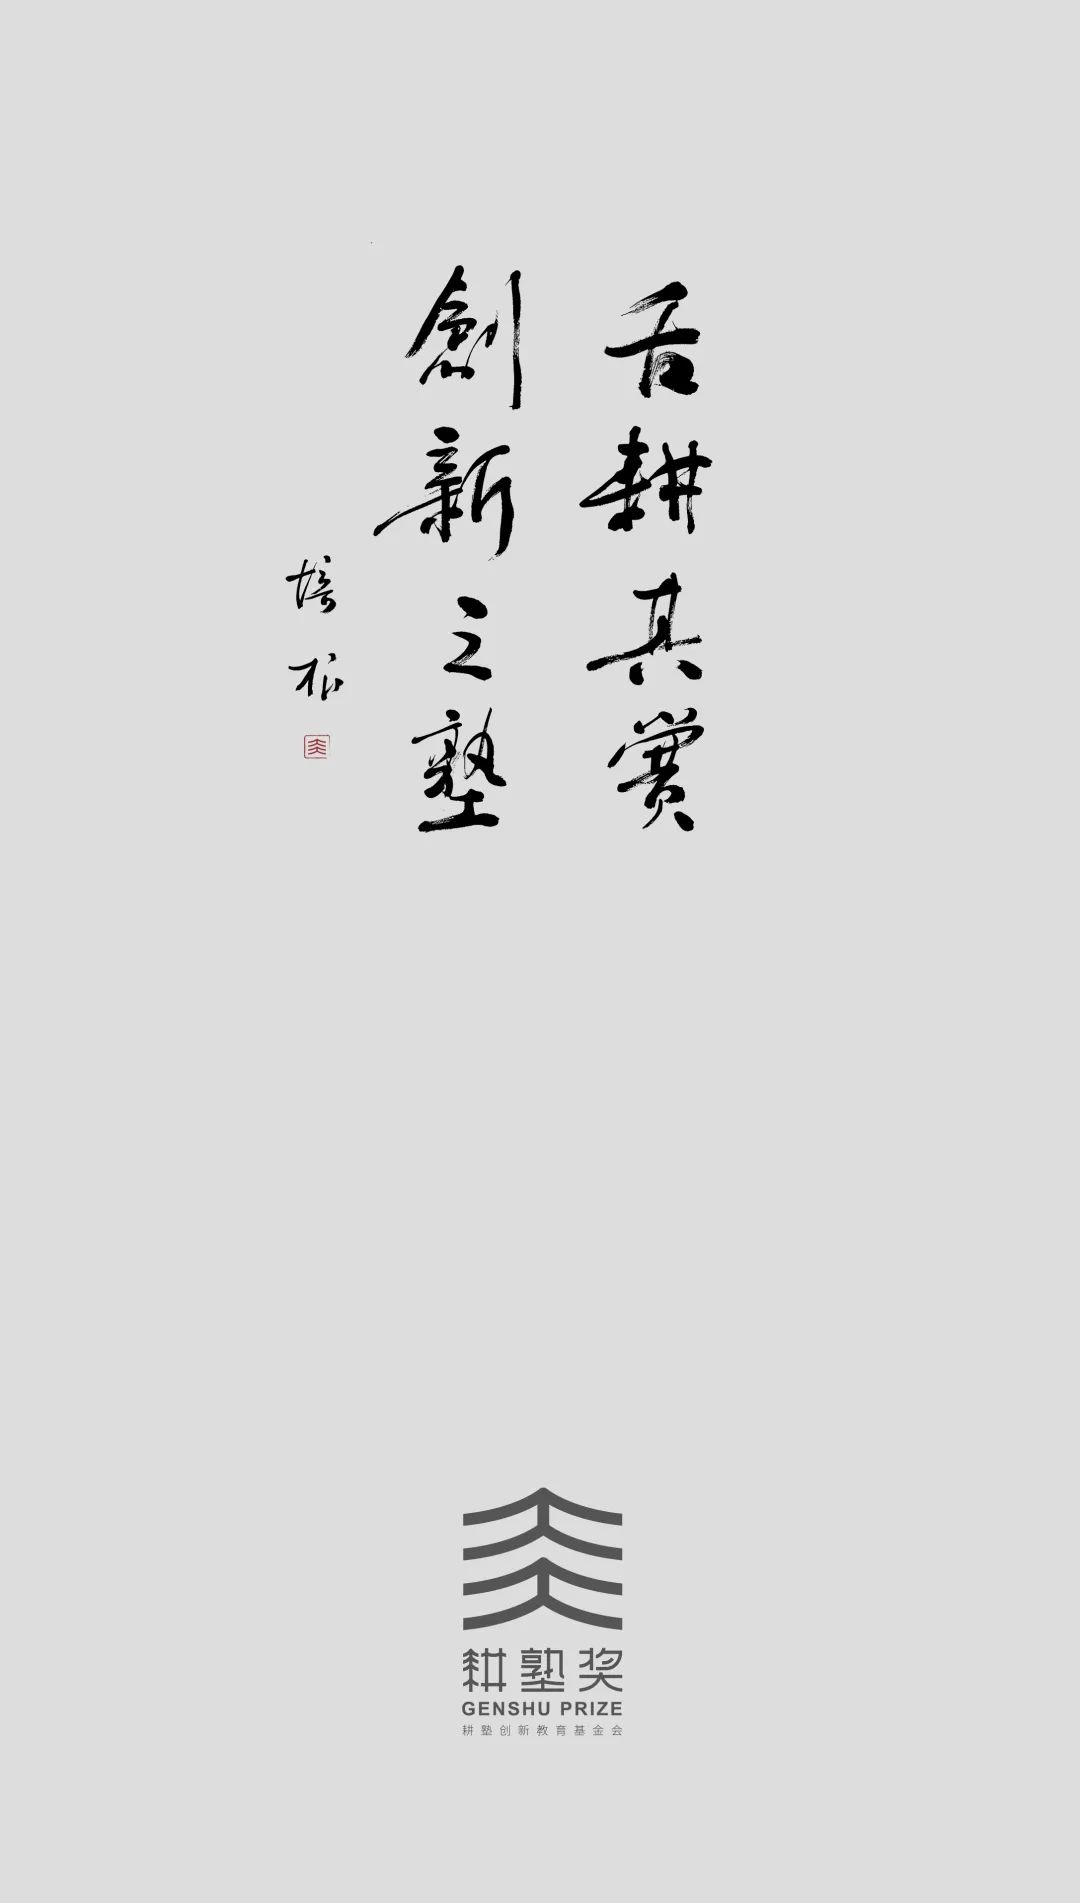 舌耕其赏
創新之塾
培根
耕塾奖
GENSHU PRIZE
耕塾创新教育基金会